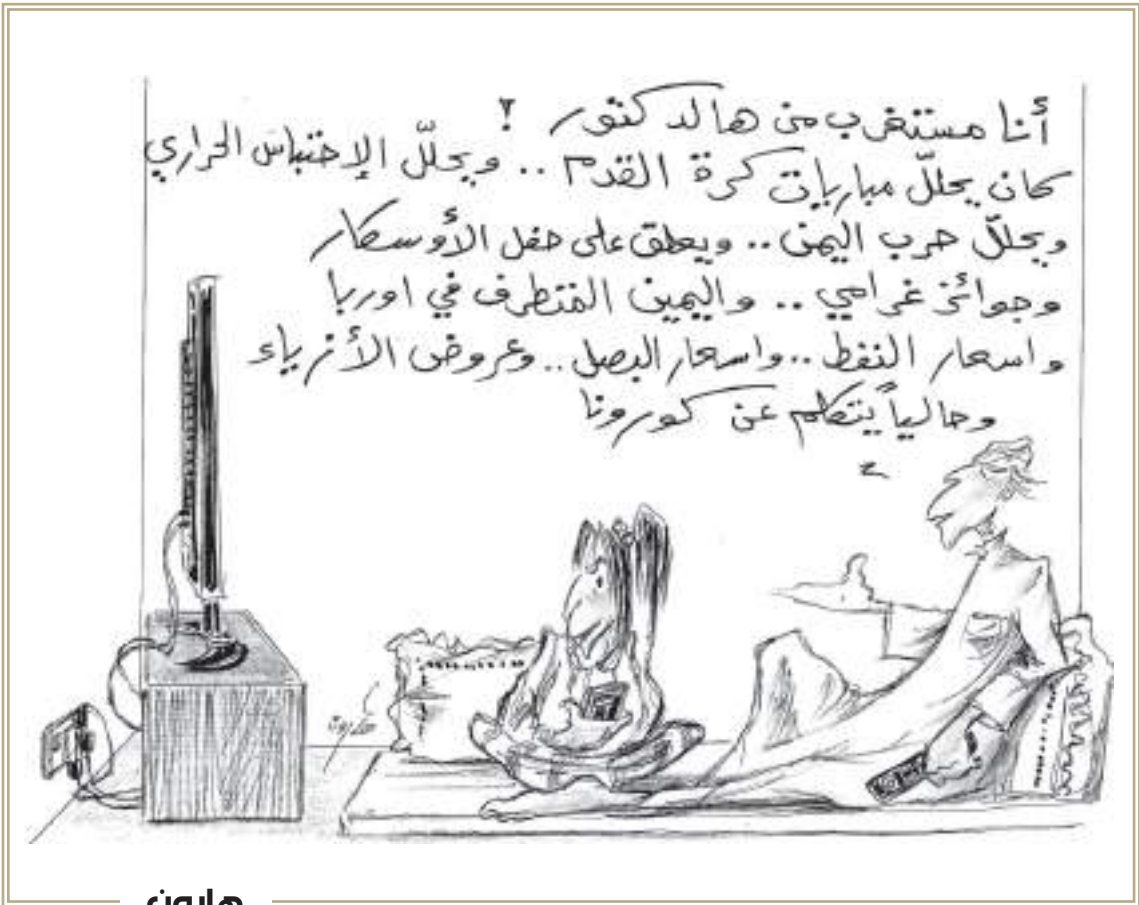 أنا مستغرب من هالدكتور !
كان يحلّل مباريات كرة القدم .. ويحلّل الإحتباس الحراري
ويحللّ حرب اليمن .. ويعلق على حفل الأوسكار
وجوائز غرامي .. واليمين المتطرف في اوربا
واسعار النفط .. واسعار البصل .. وعروض الأزياء
وحالياً يتكلم عن كورونا
هارون